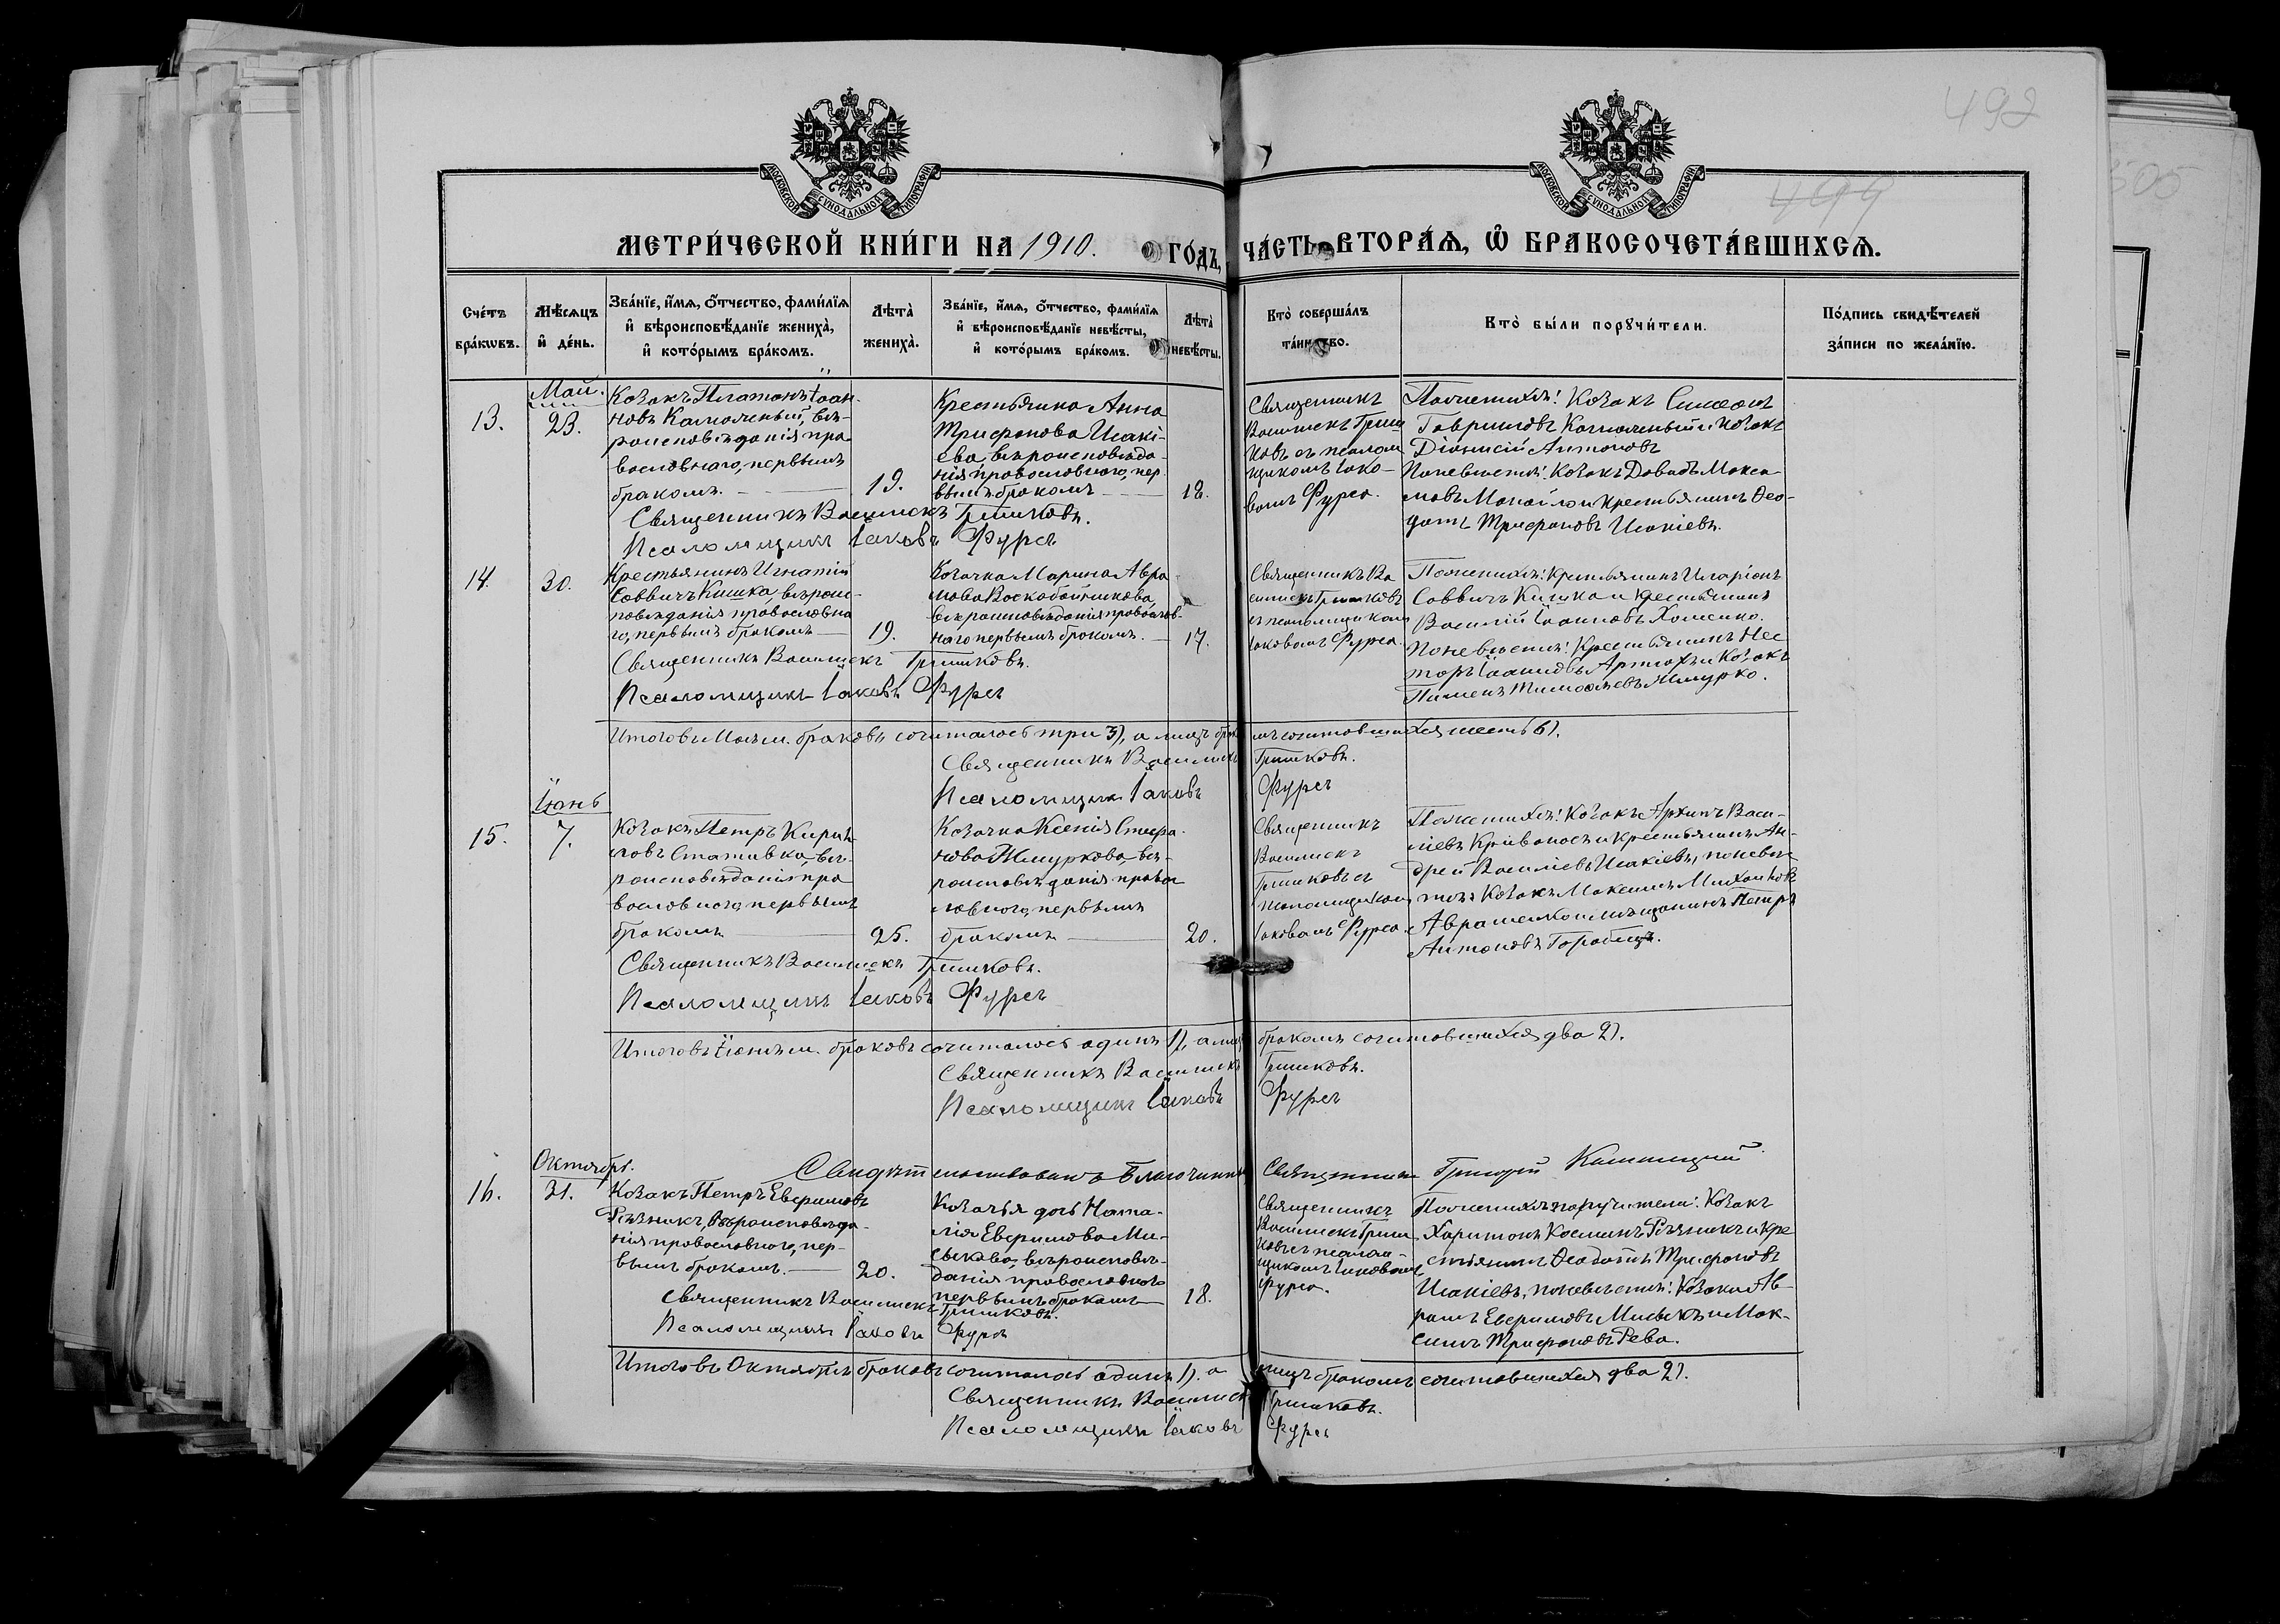 492
499
505
МОСКОВСКОЙ СУНОДАЛЬНОЙ ТИПОГРАФІИ
МОСКОВСКОЙ СУНОДАЛЬНОЙ ТИПОГРАФІИ
МЕТРИ́ЧЕСКОЙ КНИ́ГИ НА 1910. ГО́ДЪ, ЧА́СТЬ ВТОРА́Я, Ѡ҆ БРАКОСОЧЕТА́ВШИХСЯ.
Сче́тъ бра́кѡвъ.
Мѣ́сяцъ и҆ де́нь.
Зва́нїе, и҆́мя, ѻ҆́тчество, фами́лїя и҆ вѣроисповѣ́данїе жениха̀, и҆ кото́рымъ бра́комъ.
Лѣта̀ жениха̀.
Зва́нїе, и҆́мя, ѻ҆́тчество, фами́лїя и҆ вѣроисповѣ́данїе невѣ́сты, и҆ кото́рымъ бра́комъ.
Лѣта̀ невѣ́сты.
Кто̀ соверша́лъ та́инство.
Кто̀ бы́ли порꙋчи́тели.
По́дпись свидѣ́телей за́писи по жела́нїю.
Май.
13.
23.
Козакъ Платонъ Іоан-
новъ Камляный, вѣ-
роисповѣданія пра-
вославнаго, первымъ
бракомъ.
19.
Крестьянка Анна
Трифонова Исакі-
ева, вѣроисповѣда-
нія православнаго, пер
вымъ бракомъ
18.
Священникъ
Василискъ Гриш
ковъ съ псалом
щикомъ Іако-
вомъ Фурса.
По женихѣ: Козакъ Симеонъ
Гавриловъ Камляный и козакъ
Діонисій Антоновъ
По невѣстѣ: Козакъ Давидъ Макси-
мовъ Манойло и крестьянинъ Ѳео-
дотъ Трифоновъ Исакіевъ.
Священникъ Василискъ Гришковъ.
Псаломщикъ Іаковъ Фурса
14.
30.
Крестьянинъ Игнатій
Саввичъ Кишка, вѣроис-
повѣданія православна
го, первымъ бракомъ
19.
Козачка Марина Авра
мова Воскобойникова,
вѣроисповѣданія православ-
наго первымъ бракомъ.
17.
Священникъ Ва
силискъ Гришковъ
съ псаломщикомъ
Іаковомъ Фурса.
По женихѣ: крестьянинъ Иларіонъ
Саввичъ Кишка и крестьянинъ
Василій Іоанновъ Хоменко.
По невѣстѣ: Крестьянинъ Нес
торъ Іоанновъ Артюхъ и Козакъ
Пименъ Тимоѳеевъ Жмурко.
Священникъ Василискъ Гришковъ.
Псаломщикъ Іаковъ Фурса
Итого въ Маѣ м. браковъ сочиталось три 3), а лицъ бракомъ сочитавшихся шесть 6).
Священникъ Василискъ Гришковъ.
Псаломщикъ Іаковъ Фурса
Іюнь
15.
7.
Козакъ Петръ Кирил-
ловъ Стативка, вѣ-
роисповѣданія пра
вославнаго, первымъ
бракомъ
25.
Козачка Ксенія Стефа-
нова Жмуркова, вѣ-
роисповѣданія правос
лавнаго, первымъ
бракомъ
20.
Священникъ
Василискъ
Гришковъ съ
псаломщикомъ
Іаковомъ Фурса.
По женихѣ: Козакъ Архипъ Васи-
ліевъ Кривоносъ и крестьянинъ Ан-
дрей Василіевъ Исакіевъ, по невѣс
тѣ: Козакъ Максимъ Михайловъ
Авраменко и мѣщанинъ Петръ
Антоновъ Горобецъ.
Священникъ Василискъ Гришковъ.
Псаломщикъ Іаковъ Фурса
Итого въ Іюнѣ м. браковъ сочиталось одинъ 1), а лицъ бракомъ сочитавшихся два 2).
Священникъ Василискъ Гришковъ.
Псаломщикъ Іаковъ Фурса
Октябрь.
Свидѣтельствовалъ Благочинный Священникъ Григорій
16.
31.
Козакъ Петръ Евфимовъ
Рѣзникъ, вѣроисповѣда-
нія православнаго, пер-
вымъ бракомъ.
20.
Козачья дочь Ната-
лія Евфимова Ми-
сыкова, вѣроисповѣ-
данія православнаго
первымъ бракомъ
18.
Священникъ
Василискъ Гриш
ковъ съ псалом-
щикомъ Іаковомъ
Фурса.
По женихѣ поручители: Козакъ
Харитонъ Косминъ Рѣзникъ и кре
стьянинъ Ѳеодотъ Трифоновъ
Исакіевъ, по невѣстѣ: Козаки Ав-
рамъ Евфимовъ Мисыкъ и Мак-
симъ Трифоновъ Рева.
Священникъ Василискъ Гришковъ.
Псаломщикъ Іаковъ Фурса
Итого въ Октябрѣ браковъ сочиталось одинъ 1). а лицъ бракомъ сочитавшихся два 2).
Священникъ Василискъ Гришковъ.
Псаломщикъ Іаковъ Фурса